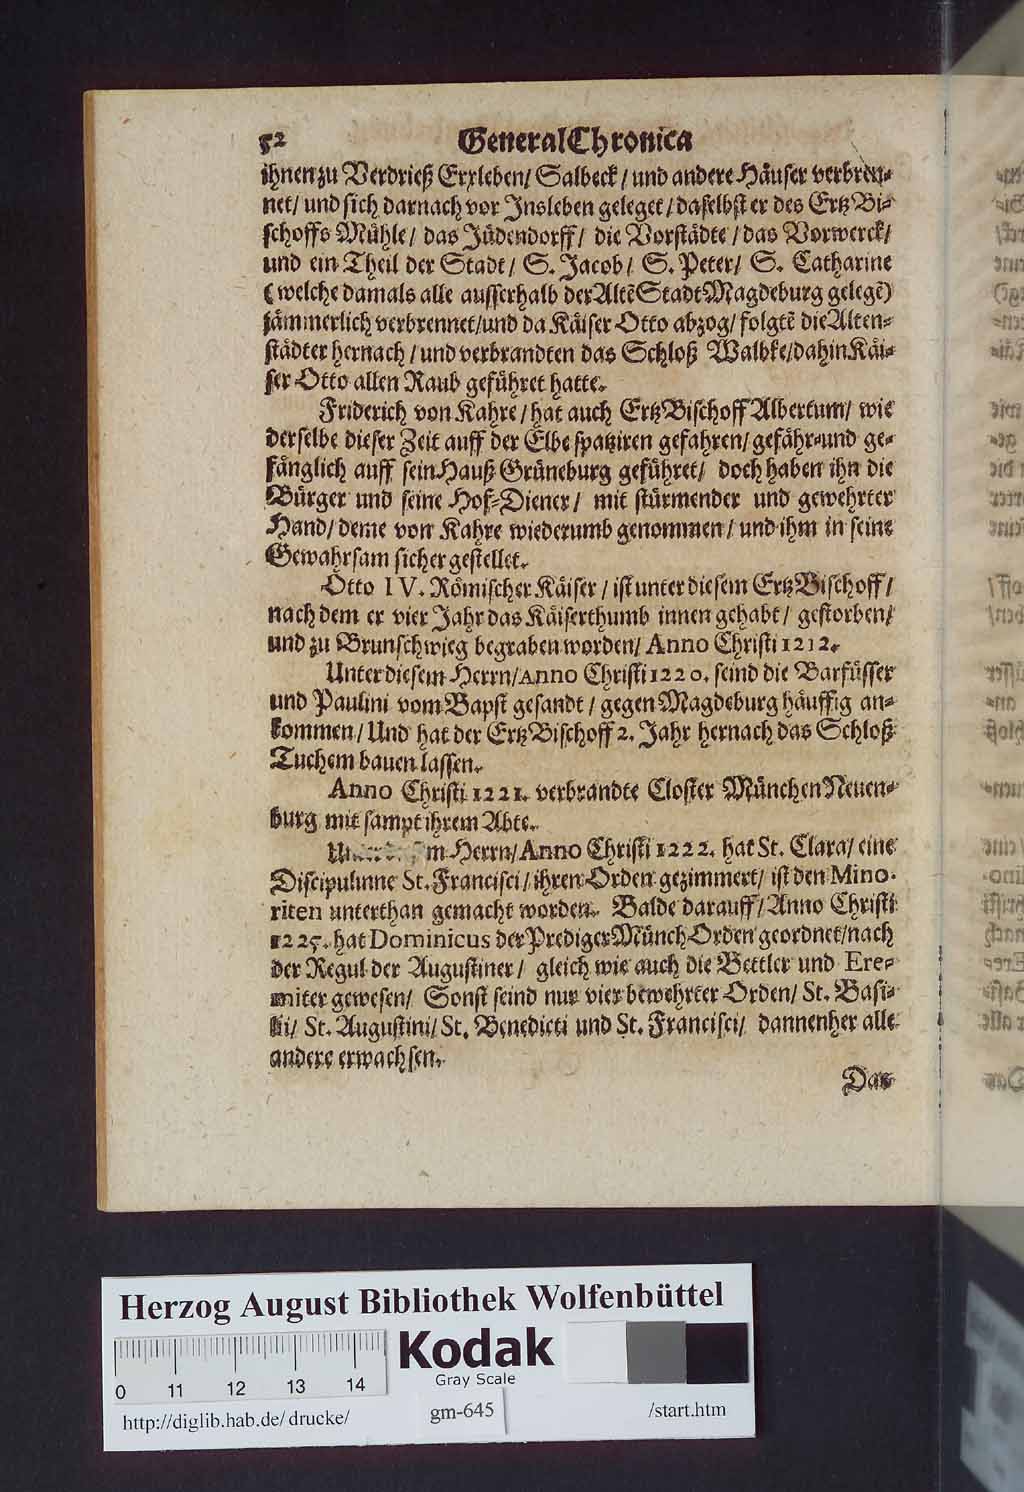 52 General Chronica
ihnen zu Verdrieß Erxleben/ Salbeck/ und andere Häuser verbren-
net/ und sich darnach vor Insleben geleget/ daselbst er des Ertz Bi-
schoffs Mühle/ das Jüdendorff/ die Vorstädte/ das Vorwerck/
und ein Theil der Stadt/ S. Jacob/ S. Peter/ S. Catharine
(welche damals alle ausserhalb der Altẽ Stadt Magdeburg gelegẽ)
jämmerlich verbrennet/ und da Käiser Otto abzog/ folgtẽ die Alten-
städter hernach/ und verbrandten das Schloß Walbke/ dahin Käi-
ser Otto allen Raub geführet hatte.
Friderich von Kahre/ hat auch Ertz Bischoff Albertum/ wie
derselbe dieser Zeit auff der Elbe spatziren gefahren/ gefähr- und ge-
fänglich auff sein Hauß Grüneburg geführet/ doch haben ihn die
Bürger und seine Hof-Diener/ mit stürmender und gewehrter
Hand/ deme von Kahre wiederumb genommen/ und ihm in seine
Gewahrsam sicher gestellet.
Otto IV. Römischer Käiser/ ist unter diesem Ertz Bischoff/
nach dem er vier Jahr das Käiserthumb innen gehabt/ gestorben/
und zu Brunschwieg begraben worden/ Anno Christi 1212.
Unter diesem Herrn/ Anno Christi 1220. seind die Barfüsser
und Paulini vom Bapst gesandt/ gegen Magdeburg häuffig an-
kommen/ Und hat der Ertz Bischoff 2. Jahr hernach das Schloß
Tuchem bauen lassen.
Anno Christi 1221. verbrandte Closter München Neuen-
burg mit sampt ihrem Abte.
Herrn/ Anno Christi 1222. hat St. Clara/ eine
Discipulinne St. Francisci/ ihren Orden gezimmert/ ist den Mino-
riten unterthan gemacht worden. Balde darauff/ Anno Christi
1225. hat Dominicus der Prediger Münch Orden geordnet/ nach
der Regul der Augustiner/ gleich wie auch die Bettler und Ere-
miter gewesen/ Sonst seind nur vier bewehrter Orden/ St. Basi-
lii/ St. Augustini/ St. Benedicti und St. Francisci/ dannenher alle
andere erwachsen.
Das
Herzog August Bibliothek Wolfenbüttel
Kodak
Gray Scale
0 11 12 13 14
http://diglib.hab.de/drucke/ gm-645 /start.htm